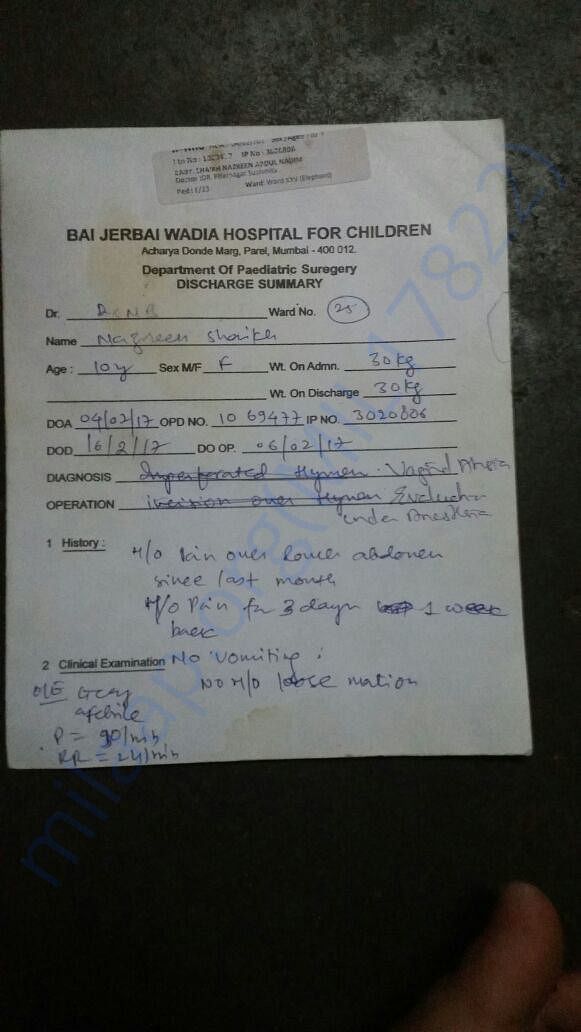 IP No : 3020806
BABY. SHAIKH NAZREEN ABDUL NADIM
Ward
(Elephant)
BAI JERBAI WADIA HOSPITAL FOR CHILDREN
Acharya Donde Marg, Parel, Mumbai - 400 012.
Department Of Paediatric Suregery
DISCHARGE SUMMARY
Dr. Ward No. 25
Name Nazreen Shaikh
Age : 10y Sex M/F F Wt. On Admn. 30 kg
Wt. On Discharge 30 kg
DOA 04/02/17 OPD NO. 10 69477 IP NO. 3020806
DOD 16/2/17 DO OP. 06/02/17
DIAGNOSIS Imperforated Hymen. Vaginal Atresia
OPERATION incision over Hymen Evaluation
under Anesthesia
1 History : H/o Pain over lower abdomen
since last month
H/o Pain for 3 days 1 week
back
2 Clinical Examination No vomiting
No H/o loose motion
O/E
afebrile
P = 90/min
RR = 24/min
milaap.org(MIL_178222)